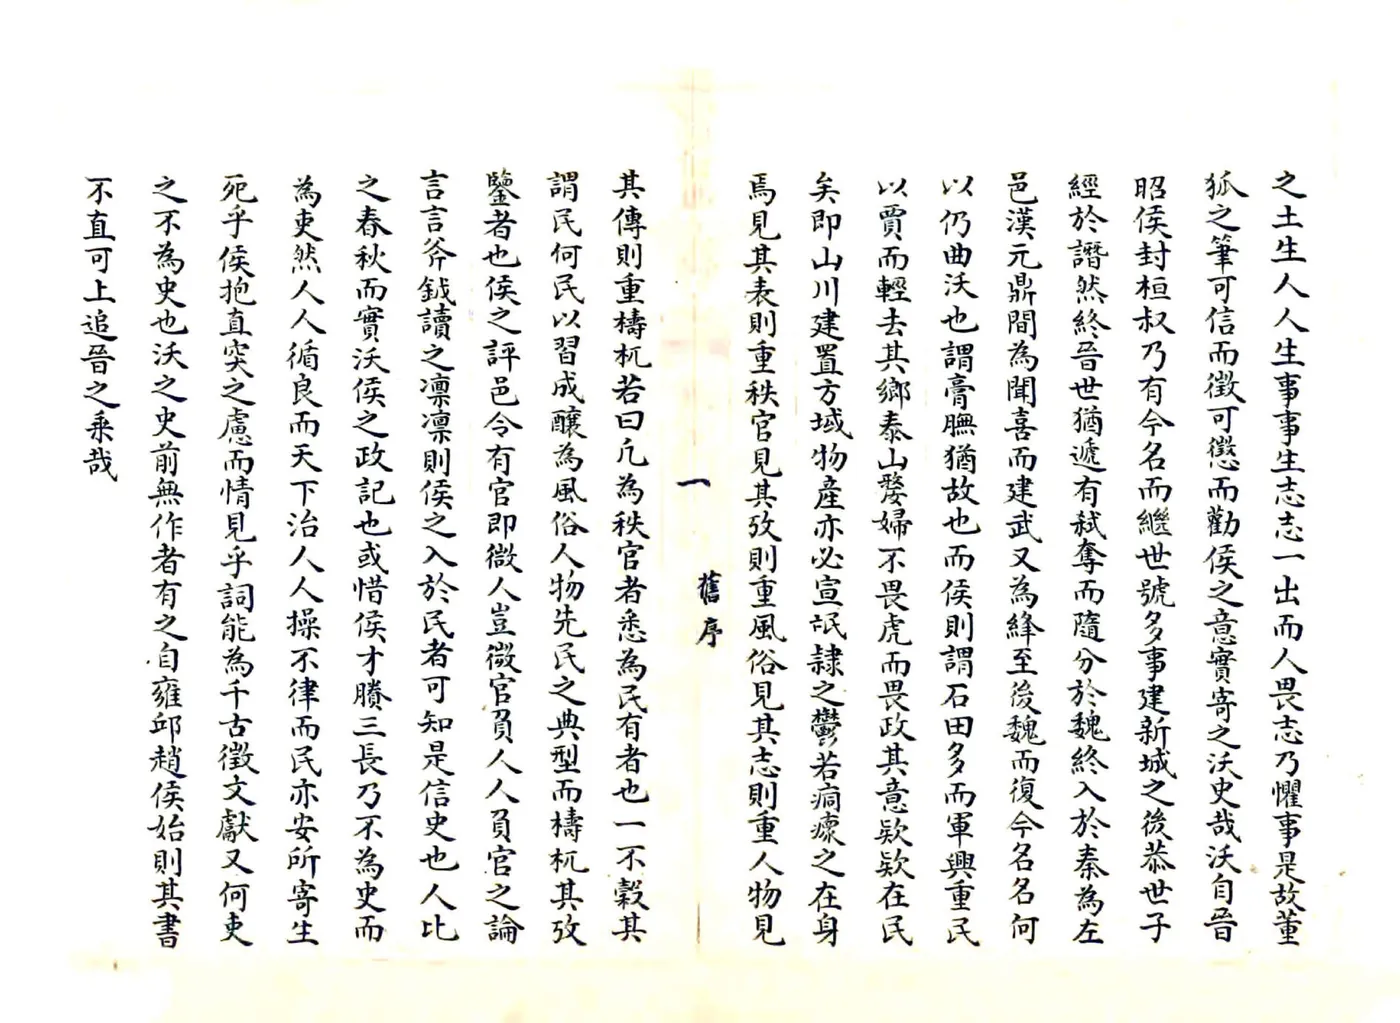 之土生人人生事事生志志一出而人畏志乃懼事是故董
狐之筆可信而徵可懲而勸侯之意實寄之沃史哉沃自晉
昭侯封桓叔乃有今名而繼世號多事建新城之後恭世子
經於譖然終晉世猶遞有弒奪而隨分於魏終入於秦為左
邑漢元鼎間為聞喜而建武又為絳至後魏而復今名名何
以仍曲沃也謂膏膴猶故也而侯則謂石田多而軍興重民
以賈而輕去其鄉泰山嫠婦不畏虎而畏政其意欵欵在民
矣即山川建置方域物產亦必宣氓隸之鬱若痌瘝之在身
焉見其表則重秩官見其攷則重風俗見其志則重人物見
一
舊序
其傳則重檮杌若曰凢為秩官者悉為民有者也一不穀其
謂民何民以習成釀為風俗人物先民之典型而檮杌其攷
鑒者也侯之評邑令有官即微人豈微官負人人負官之論
言言斧鉞讀之凛凛則侯之入於民者可知是信史也人比
之春秋而實沃侯之政記也或惜侯才賸三長乃不為史而
為吏然人人循良而天下治人人操不律而民亦安所寄生
死乎侯抱直突之慮而情見乎詞能為千古徵文獻又何吏
之不為史也沃之史前無作者有之自雍邱趙侯始則其書
不直可上追晉之乘哉